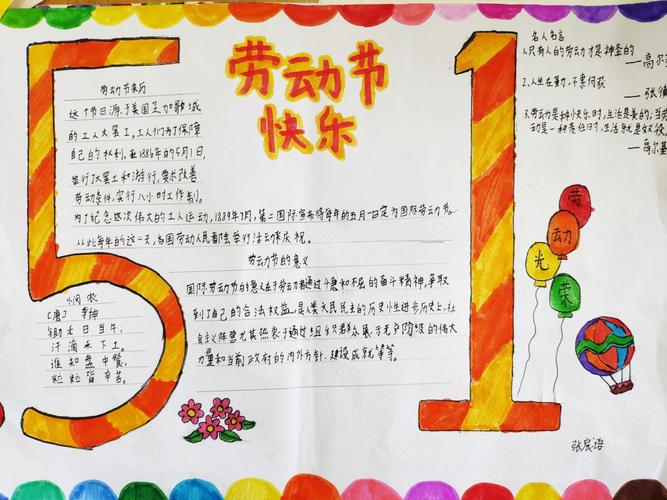 5
1
劳动节
快乐
劳动节来历
这个节日源于美国芝加哥城
的工人大罢工。工人们为了保障
自己的权利,在1886年的5月1日,
举行了大罢工和游行,要求改善
劳动条件,实行八小时工作制。
为了纪念这次伟大的工人运动,1889年7月,第二国际宣布将每年的五月一日定为国际劳动节。
从此每年的这一天,各国劳动人民都要举行活动来庆祝。
劳动节的意义
国际劳动节的意义在于劳动者通过斗争和不屈的奋斗精神,争取
到了自己的合法权益,是人类文民主的历史性进步历史上,社
会主义阵营尤其热衷于通过组织群众展示无产阶级的伟大
力量和当前政府的内外方针、建设成就等等。
悯农
[唐] 李绅
锄禾日当午,
汗滴禾下土。
谁知盘中餐,
粒粒皆辛苦。
名人名言
1.只有人的劳动才是神圣的
——高尔基
2.人生在勤,不索何获
——张衡
3.劳动是种快乐时,生活是美的;当劳
动是一种责任时,生活就是奴役。
——高尔基
劳
动
光
荣
张宸语